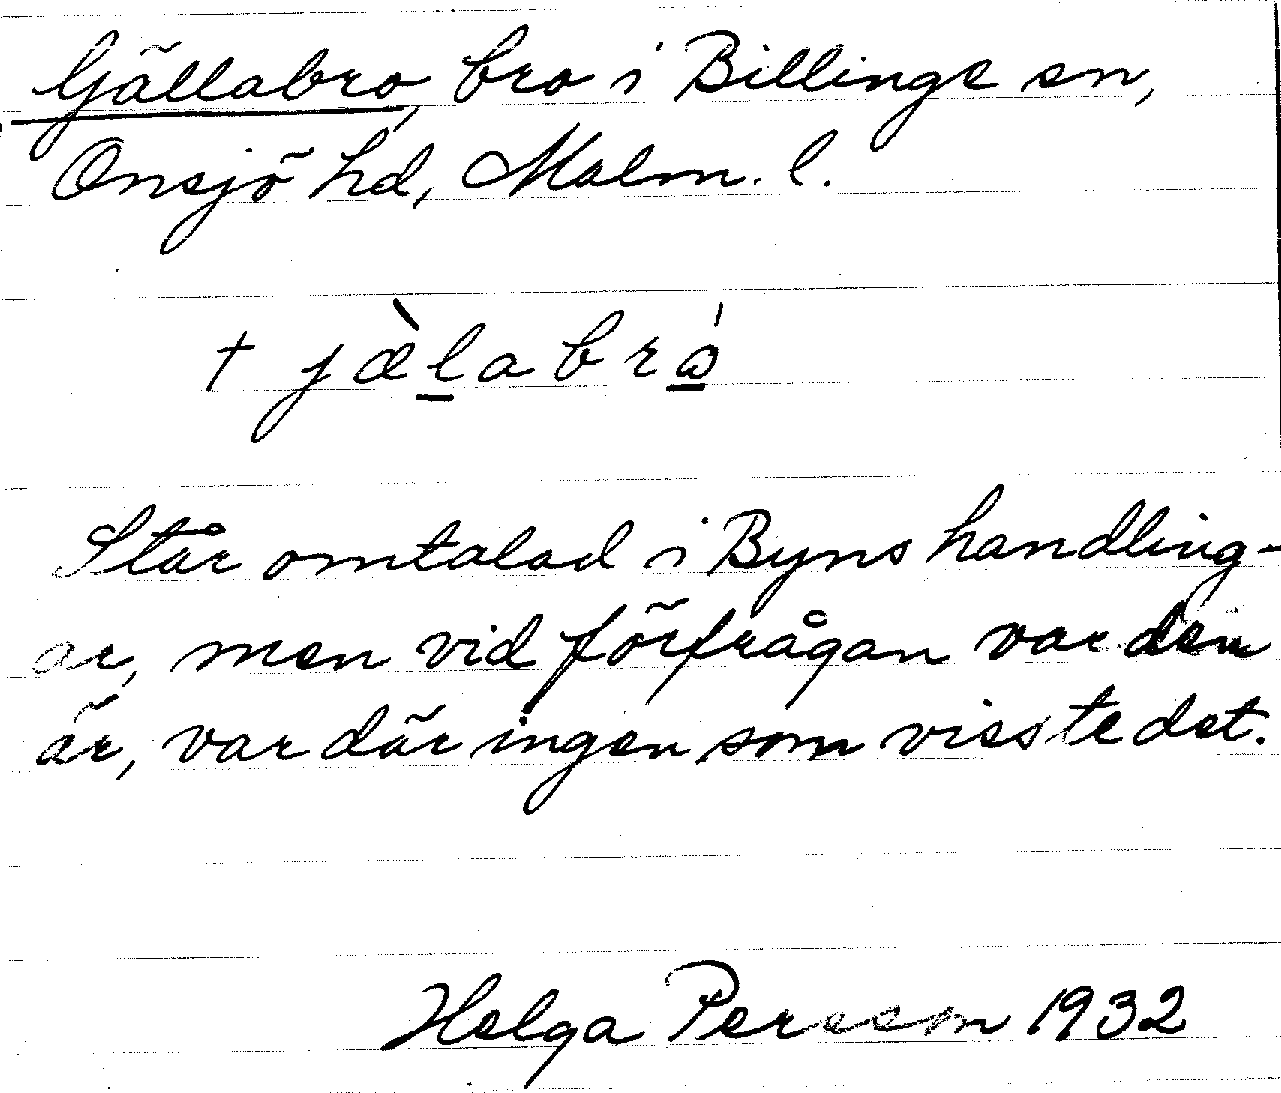 Gällabro, bro i Billinge sn,
Onsjö hd, Malm. l.
† jæ̀l̲abrǻ̲
Står omtalad i Byns handling-
ar, men vid förfrågan var den
är, var där ingen som visste det.
Helga Persson 1932